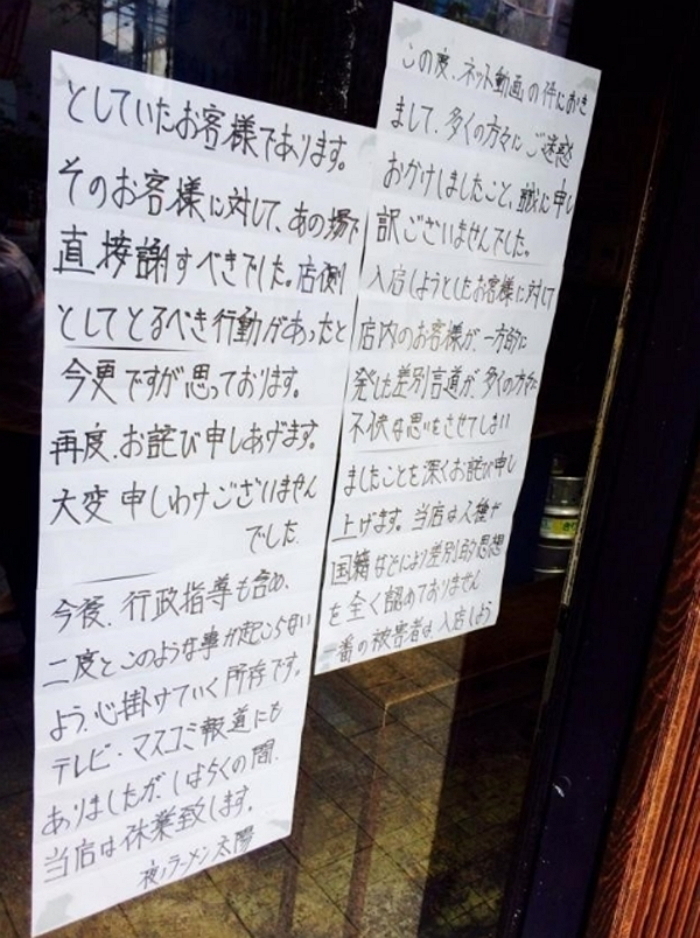 この度、ネット動画の件におき
まして、多くの方々にご迷惑
おかけしましたこと、誠に申し
訳ございませんでした。
入店しようとしたお客様に対して
店内のお客様が、一方的に
発した差別言道が、多くの方々に
不快な思いをさせてしまい
ましたことを深くお詫び申し
上げます。当店は人種や
国籍などにより差別的思想
を全く認めておりません
一番の被害者は、入店しよう
としていたお客様であります。
そのお客様に対して、あの場で
直接謝すべきでした。店側
としてとるべき行動があったと
今更ですが思っております。
再度、お詫び申しあげます。
大変申しわけございません
でした。
今後、行政指導も含め、
二度とこのような事が起こらない
よう、心掛けていく所存です。
テレビ・マスコミ報道にも
ありましたが、しばらくの間、
当店は休業致します。
夜ノラーメン 太陽